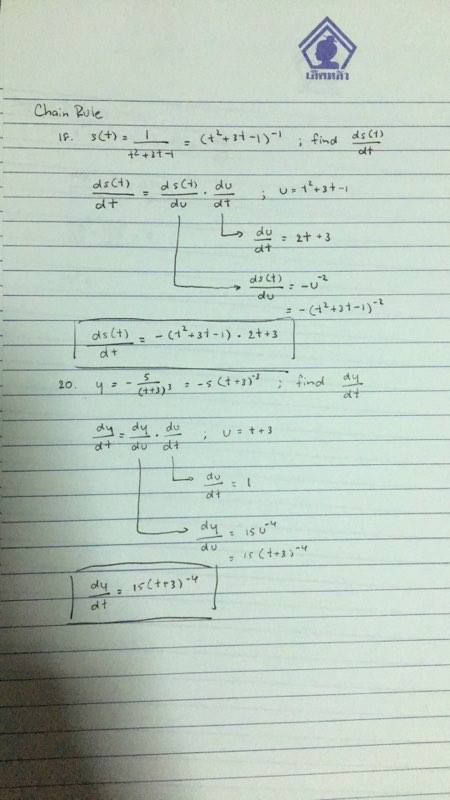 เลิศหล้า
Chain Rule
18. s(t) = 1/(t²+3t-1) = (t²+3t-1)⁻¹ ; find ds(t)/dt
ds(t)/dt = ds(t)/du · du/dt ; u = t²+3t-1
du/dt = 2t+3
ds(t)/du = -u⁻²
= -(t²+3t-1)⁻²
ds(t)/dt = -(t²+3t-1) · 2t+3
20. y = -5/(t+3)³ = -5(t+3)⁻³ ; find dy/dt
dy/dt = dy/du · du/dt ; u = t+3
du/dt = 1
dy/du = 15u⁻⁴
= 15(t+3)⁻⁴
dy/dt = 15(t+3)⁻⁴